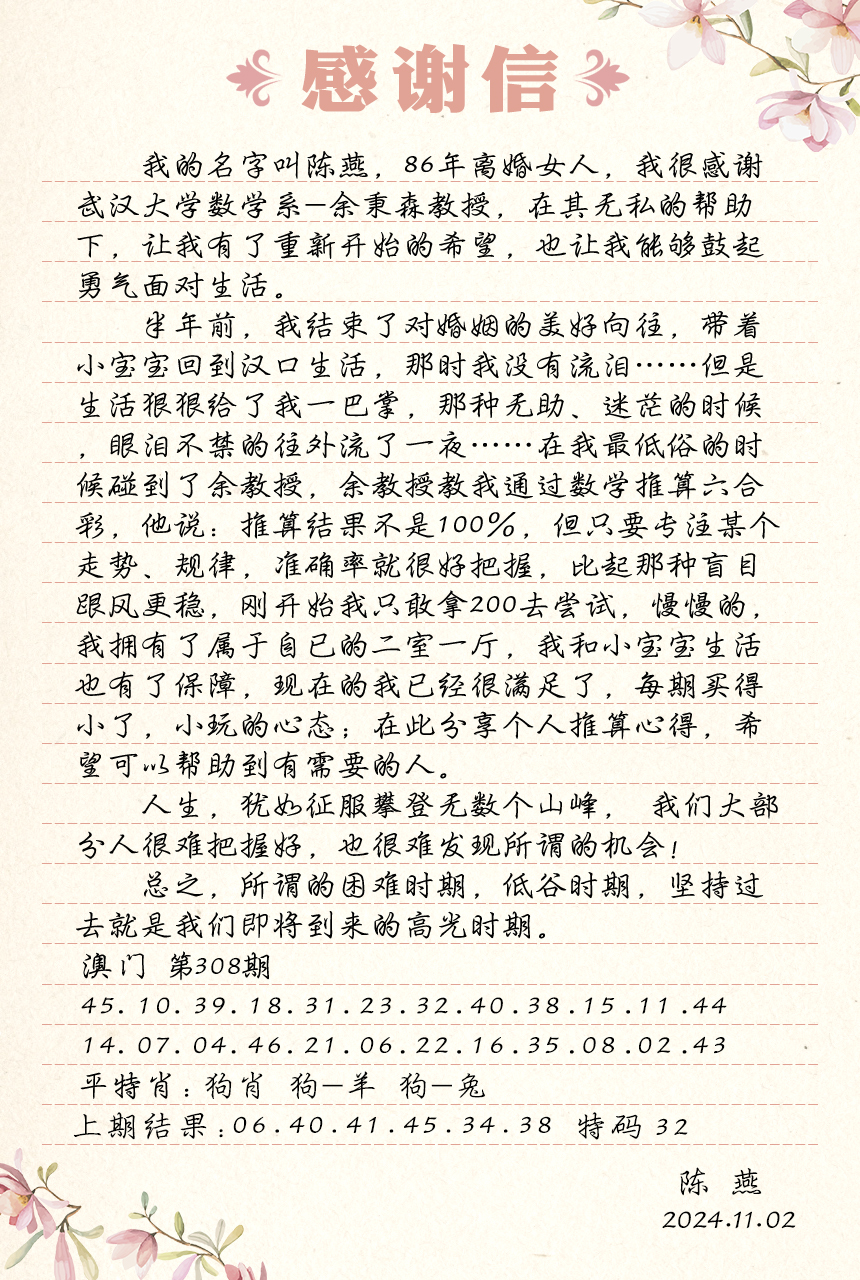 感谢信
我的名字叫陈燕，86年离婚女人，我很感谢
武汉大学数学系—余秉森教授，在其无私的帮助
下，让我有了重新开始的希望，也让我能够鼓起
勇气面对生活。
半年前，我结束了对婚姻的美好向往，带着
小宝宝回到汉口生活，那时我没有流泪……但是
生活狠狠给了我一巴掌，那种无助、迷茫的时候
，眼泪不禁的往外流了一夜……在我最低俗的时
候碰到了余教授，余教授教我通过数学推算六合
彩，他说：推算结果不是100%，但只要专注某个
走势、规律，准确率就很好把握，比起那种盲目
跟风更稳，刚开始我只敢拿200去尝试，慢慢的，
我拥有了属于自已的二室一厅，我和小宝宝生活
也有了保障，现在的我已经很满足了，每期买得
小了，小玩的心态；在此分享个人推算心得，希
望可以帮助到有需要的人。
人生，犹如征服攀登无数个山峰， 我们大部
分人很难把握好，也很难发现所谓的机会！
总之，所谓的困难时期，低谷时期，坚持过
去就是我们即将到来的高光时期。
澳门 第308期
45.10.39.18.31.23.32.40.38.15.11.44
14.07.04.46.21.06.22.16.35.08.02.43
平特肖：狗肖 狗—羊 狗—兔
上期结果：06.40.41.45.34.38 特码 32
陈 燕
2024.11.02